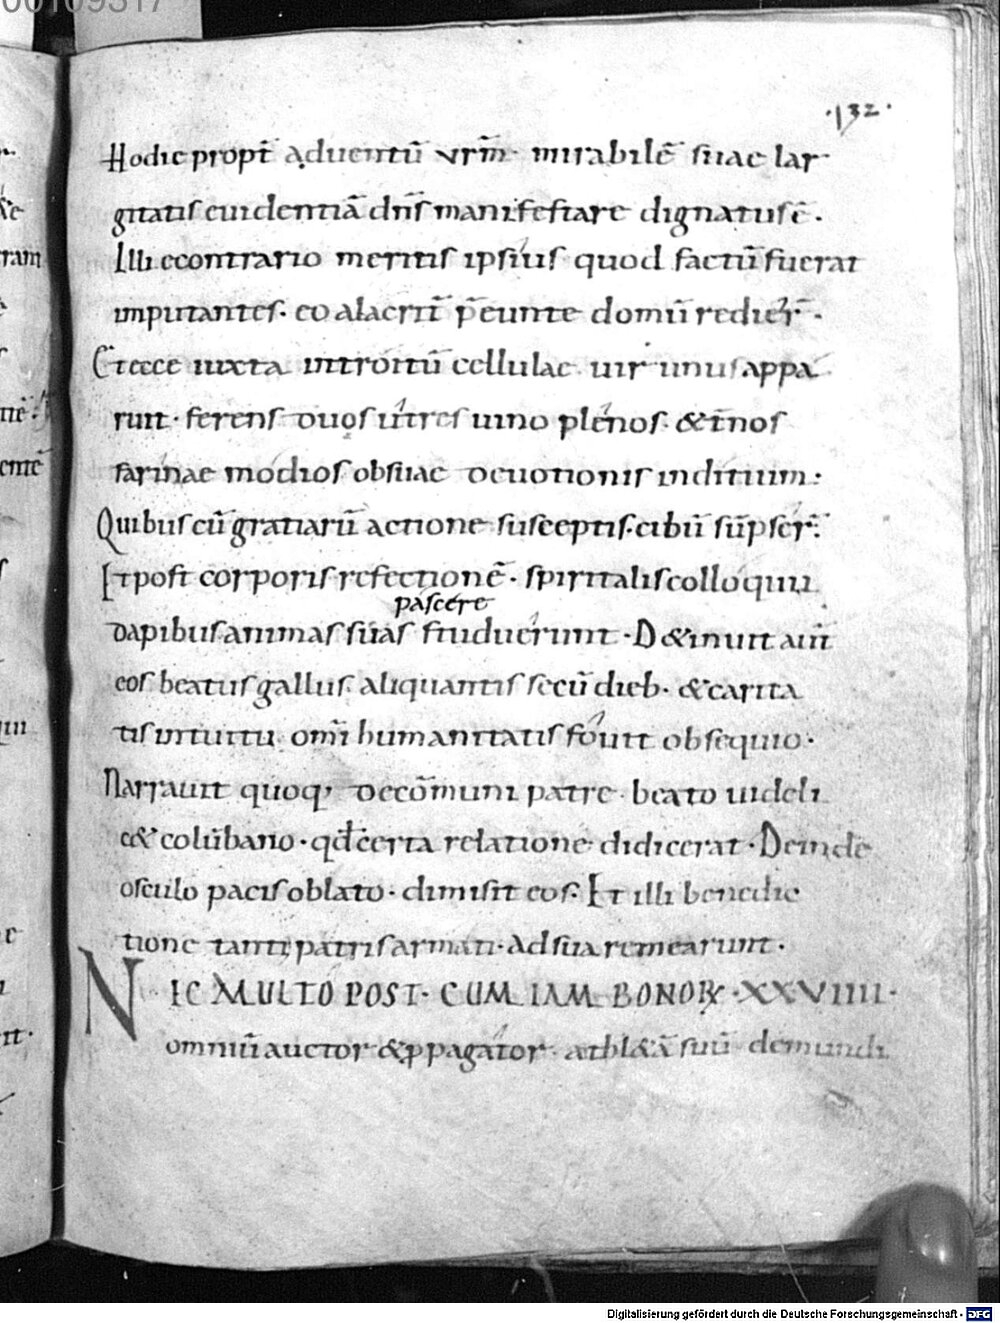 00109317
·132·
Hodie propt̄ aduentū vr̄m· mirabilē suae lar
gitatis euidentiā dn̄s manifestare dignatus ē·
Illi econtrario meritis ipsius quod factū fuerat
imputantes· eo alacrit̄ p̄eunte domū redier̄·
Et ecce iuxta introitū cellulae uir unus appa
ruit· ferens duos utres uino plenos· & t̄nos
farinae modios ob suae deuotionis inditium·
Quibus cū gratiarū actione susceptis· cibū sūpser̄·
Et post corporis refectionē· spiritalis colloquii
pascere
dapibus animas suas studuerunt· D&inuit aūt
eos beatus gallus aliquantis secū dieb· & carita
tis intuitu om̄i humanitatis fouit obsequio·
Narrauit quoq, de cōmuni patre· beato uideli
c& colūbano· qđ certa relatione didicerat· Deinde
osculo pacis oblato· dimisit eos· Et illi benedic
tione tanti patris armati· ad sua remearunt·
NEC MULTO POST· CUM IAM BONOꝝ ·XXVIIII·
omniū auctor & ꝓpagator athl&ā suū de mundi
Digitalisierung gefördert durch die Deutsche Forschungsgemeinschaft - DFG